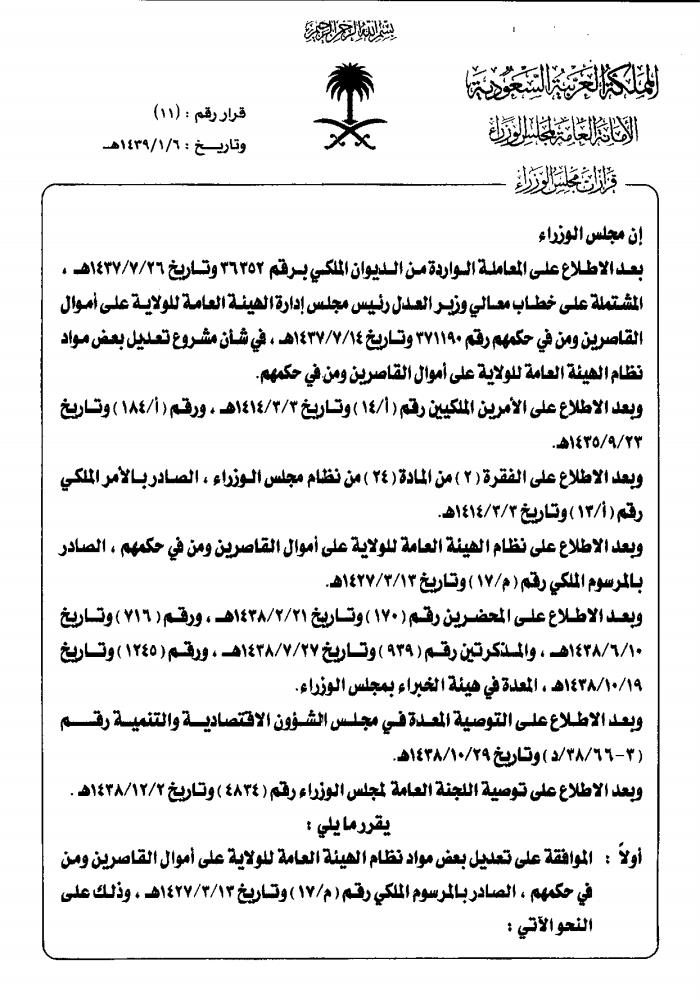 بسم الله الرحمن الرحيم
المملكة العربية السعودية
الأمانة العامة لمجلس الوزراء
قرار رقم : (١١)
وتاريخ : ١٤٣٩/١/٦هـ
قرارات مجلس الوزراء
إن مجلس الوزراء
بعد الاطلاع على المعاملة الواردة من الديوان الملكي برقم ٣٦٣٥٢ وتاريخ ١٤٣٧/٧/٢٦هـ ،
المشتملة على خطاب معالي وزير العدل رئيس مجلس إدارة الهيئة العامة للولاية على أموال
القاصرين ومن في حكمهم رقم ٣٧١١٩٠ وتاريخ ١٤٣٧/٧/١٤هـ ، في شأن مشروع تعديل بعض مواد
نظام الهيئة العامة للولاية على أموال القاصرين ومن في حكمهم.
وبعد الاطلاع على الأمرين الملكيين رقم ( أ/١٤ ) وتاريخ ١٤١٤/٣/٣هـ ، ورقم ( أ/١٨٤ ) وتاريخ
١٤٣٥/٩/٢٣هـ.
وبعد الاطلاع على الفقرة ( ٢ ) من المادة ( ٢٤ ) من نظام مجلس الوزراء ، الصادر بالأمر الملكي
رقم ( أ/١٣ ) وتاريخ ١٤١٤/٣/٣هـ.
وبعد الاطلاع على نظام الهيئة العامة للولاية على أموال القاصرين ومن في حكمهم ، الصادر
بالمرسوم الملكي رقم ( م/١٧ ) وتاريخ ١٤٢٧/٣/١٣هـ.
وبعد الاطلاع على المحضرين رقم ( ١٧٠ ) وتاريخ ١٤٣٨/٢/٢١هـ ، ورقم ( ٧١٦ ) وتاريخ
١٤٣٨/٦/١٠هـ ، والمذكرتين رقم ( ٩٣٩ ) وتاريخ ١٤٣٨/٧/٢٧هـ ، ورقم ( ١٢٤٥ ) وتاريخ
١٤٣٨/١٠/١٩هـ ، المعدة في هيئة الخبراء بمجلس الوزراء.
وبعد الاطلاع على التوصية المعدة في مجلس الشؤون الاقتصادية والتنمية رقم
( ٣-٣٨/٦٦/د ) وتاريخ ١٤٣٨/١٠/٢٩هـ.
وبعد الاطلاع على توصية اللجنة العامة لمجلس الوزراء رقم ( ٤٨٣٤ ) وتاريخ ١٤٣٨/١٢/٢هـ .
يقرر ما يلي :
أولاً : الموافقة على تعديل بعض مواد نظام الهيئة العامة للولاية على أموال القاصرين ومن
في حكمهم ، الصادر بالمرسوم الملكي رقم ( م/١٧ ) وتاريخ ١٤٢٧/٣/١٣هـ ، وذلك على
النحو الآتي :